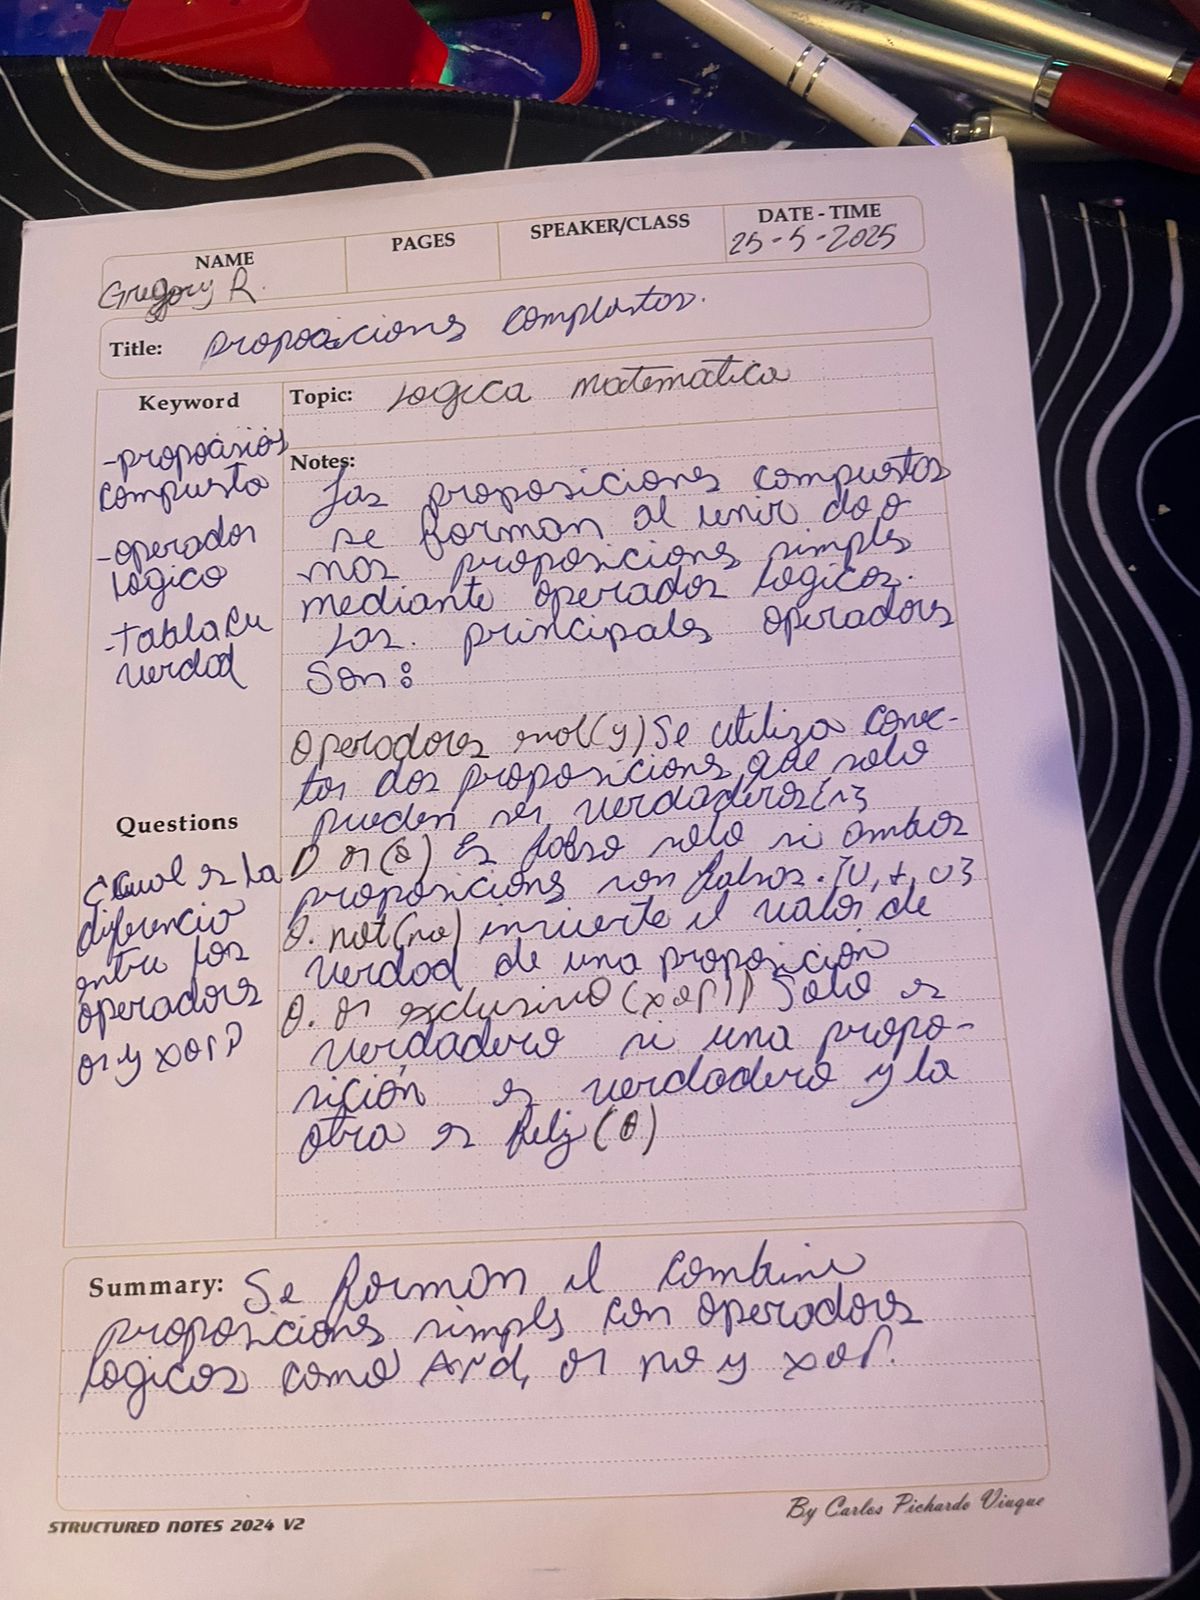 NAME
PAGES
SPEAKER/CLASS
DATE - TIME
Gregory R.
25-5-2025
Title: proposicions compuestos.
Keyword
-proposición
compuesta
-operador
logico
-tabla de
verdad
Topic: Logica matematica
Notes:
Las proposiciones compuestas
se forman al unir do o
mas proposicions simples
mediante operados logicos.
Los principales operadores
Son:
Operadores (y) Se utiliza conec-
tar dos proposicions que solo
pueden ser verdaderos
or(o) Es falso solo si ambos
proposicions son falsos.
O. not(no) invierte el valor de
verdad de una proposición
O. or exclusivo (xor) Solo es
verdadero si una propo-
sición es verdadero y la
otra es
Questions
¿Cual es la
diferencia
entre los
operadores
or y xor?
Summary: Se forman al combine
proposicions simples con operadores
logicos como And, or no y xor.
STRUCTURED NOTES 2024 V2
By Carlos Pichardo Viuque